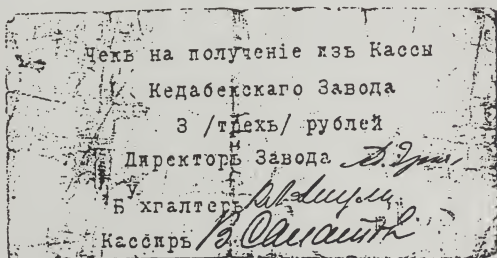 Чекъ на полученіе изъ Кассы
Кедабекскаго Завода
3 /трехъ/ рублей
Директоръ Завода
Бухгалтеръ
Кассиръ